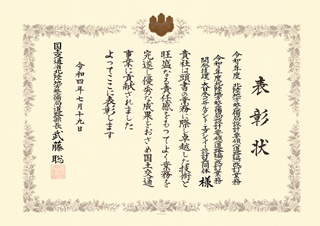 表彰状
令和元年度 北陸地方整備局設計要領道路編改訂業務
令和2年度北陸地方整備局設計要領道路編改訂業務
様
貴社は頭書の業務に際し卓越した技術と
旺盛なる責任感をもってよく業務を
完遂し優秀な成果をおさめ国土交通
事業に貢献されました
よってここに表彰します
令和四年七月十九日
国土交通省北陸地方整備局道路部長 武藤聡